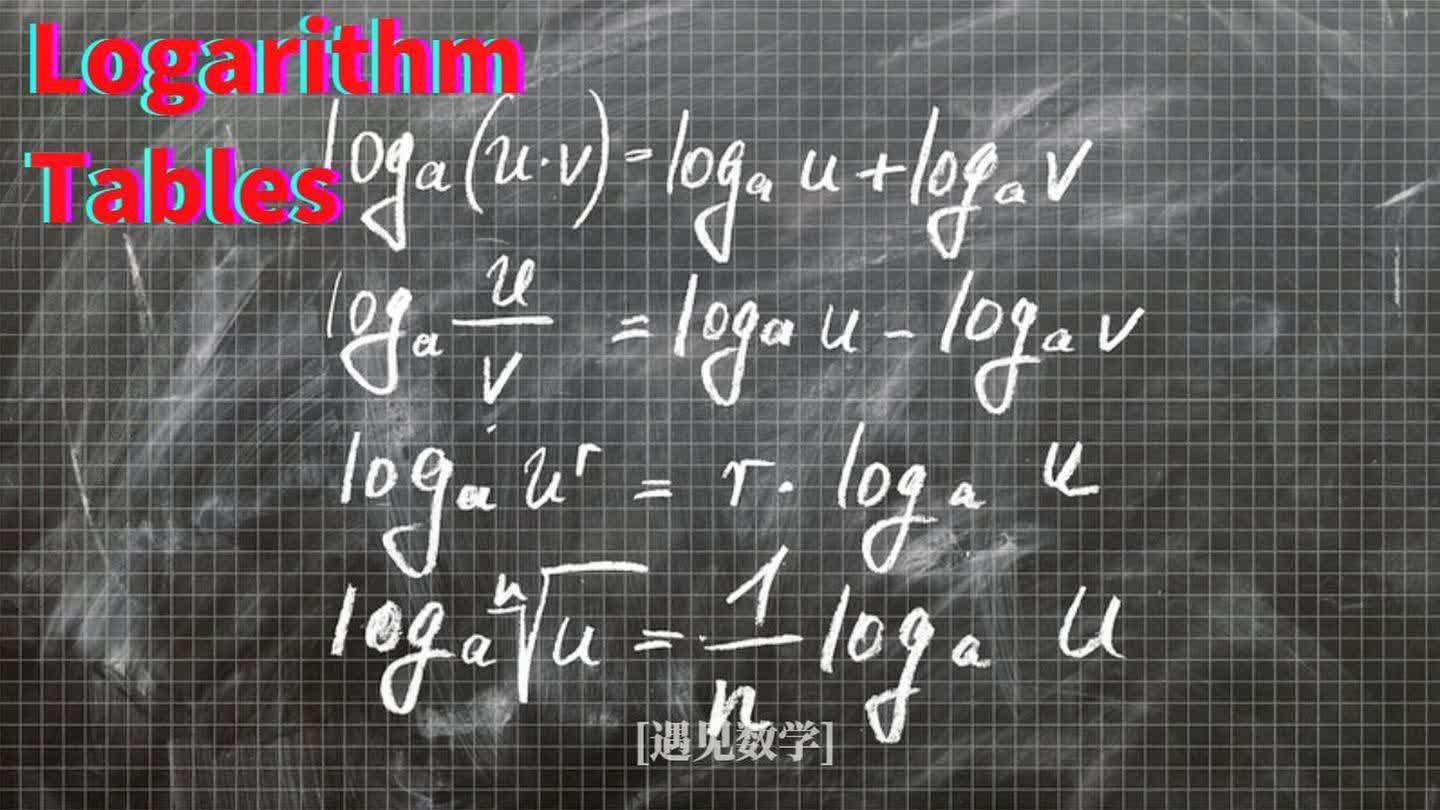 Logarithm
Tables
logₐ(u·v)=logₐ u+logₐ v
logₐ u/v = logₐ u - logₐ v
logₐ uʳ = r· logₐ u
logₐ ⁿ√u = 1/n logₐ u
[遇见数学]